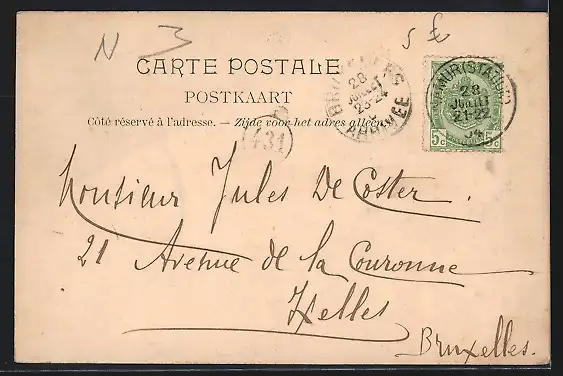 N 3 5 £
CARTE POSTALE
POSTKAART
Côté réservé à l'adresse. — Zijde voor het adres alleen.
BRUXELLES
28
JUILLET
23-24
ARRIVÉE
1431
NAMUR (STATION)
28
JUILLET
21-22
04
5c 5c
Monsieur Jules De Coster.
21 Avenue de la Couronne
Ixelles
Bruxelles.